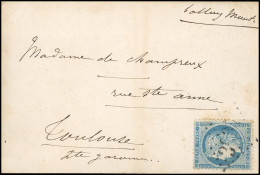 Madame de Champreux
rue Ste anne
Toulouse
Hte garonne